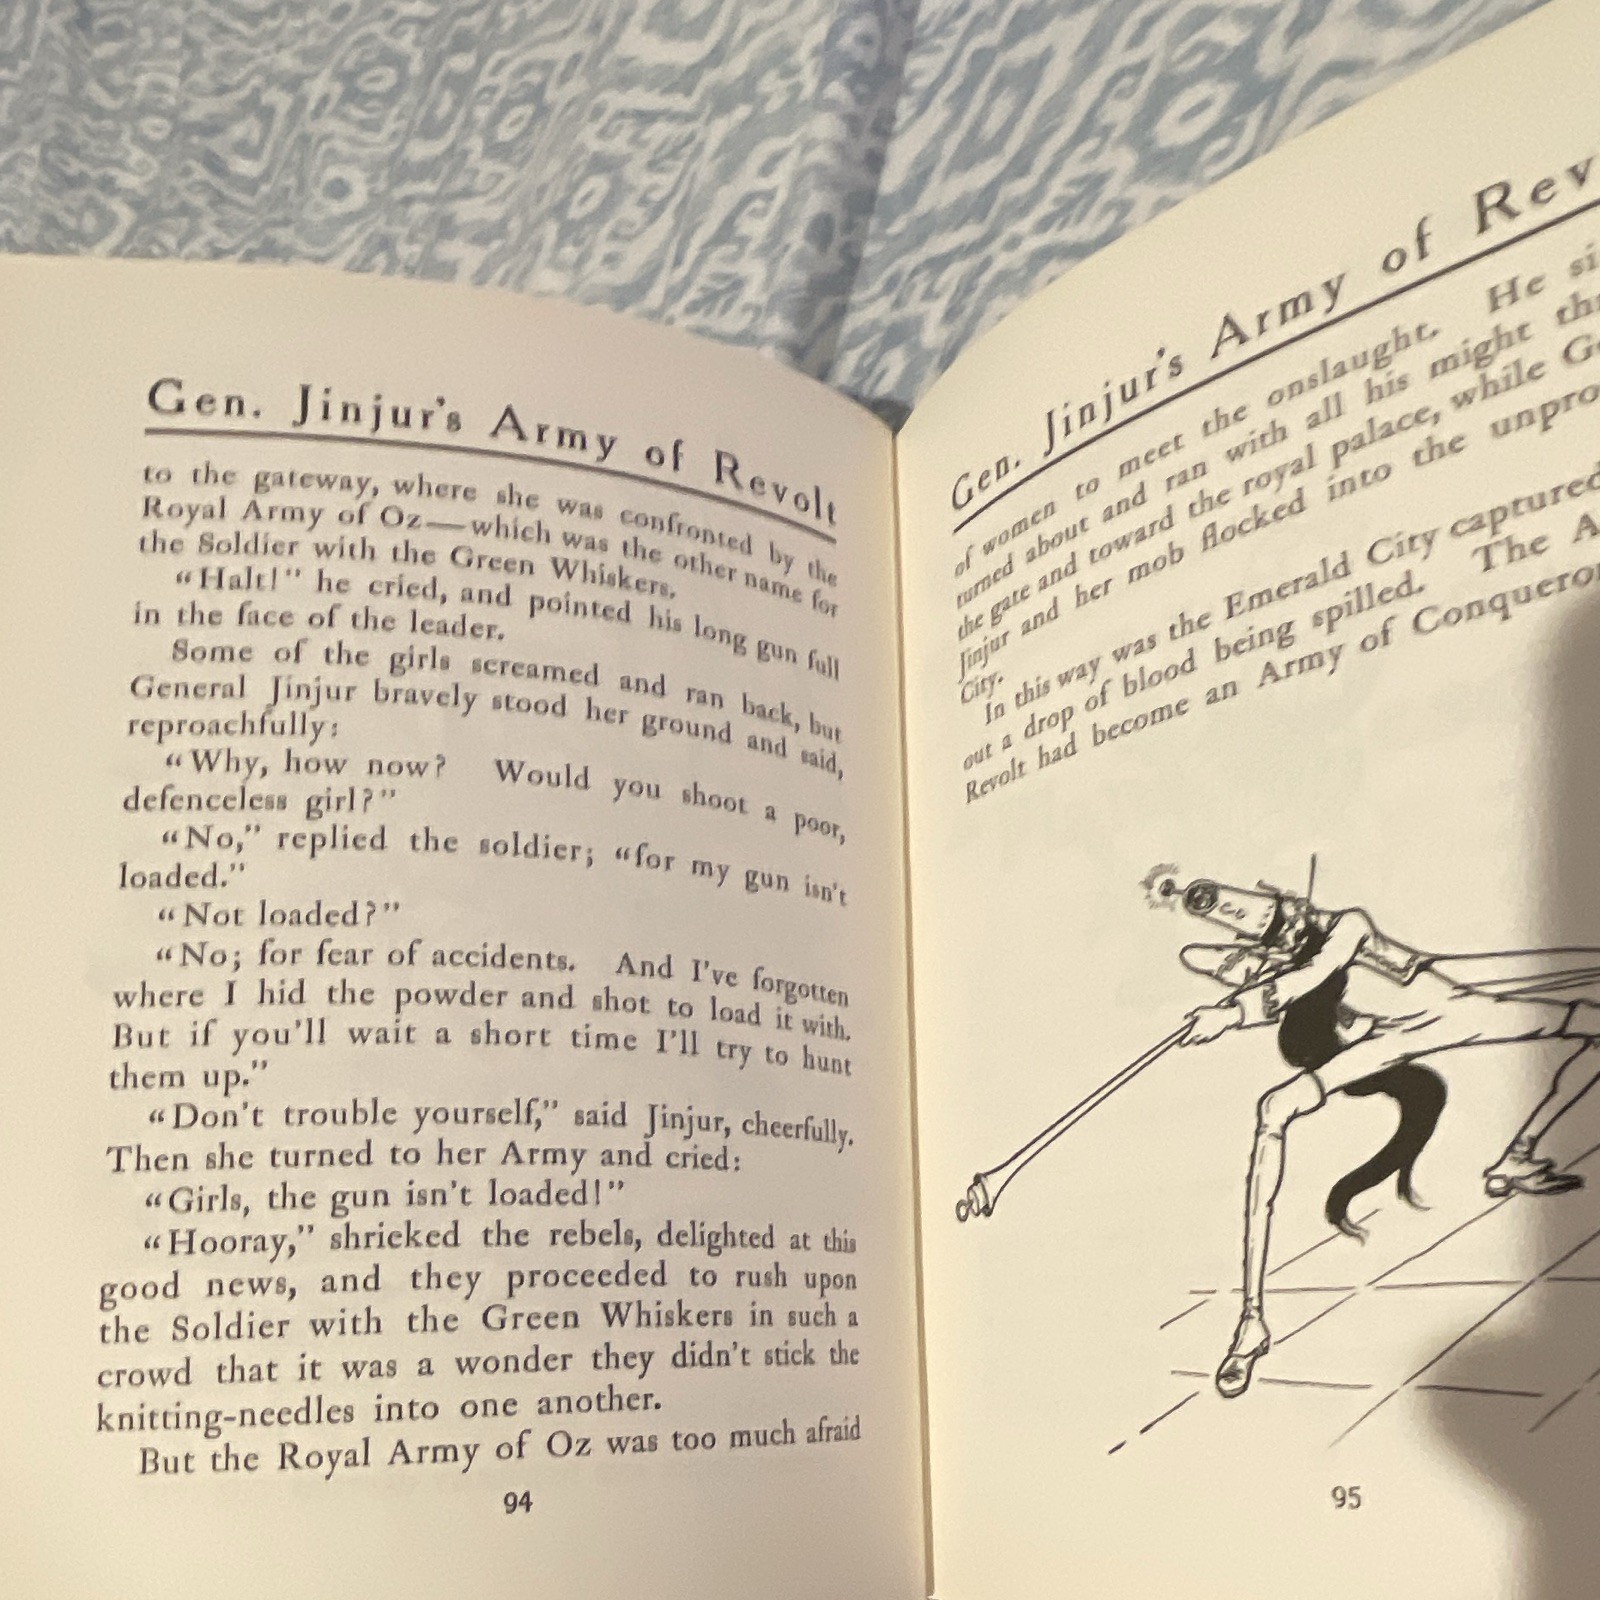 Gen. Jinjur's Army of Revolt
to the gateway, where she was confronted by the
Royal Army of Oz—which was the other name for
the Soldier with the Green Whiskers.
“Halt!” he cried, and pointed his long gun full
in the face of the leader.
Some of the girls screamed and ran back, but
General Jinjur bravely stood her ground and said,
reproachfully:
“Why, how now? Would you shoot a poor,
defenceless girl?”
“No,” replied the soldier; “for my gun isn't
loaded.”
“Not loaded?”
“No; for fear of accidents. And I've forgotten
where I hid the powder and shot to load it with.
But if you'll wait a short time I'll try to hunt
them up.”
“Don't trouble yourself,” said Jinjur, cheerfully.
Then she turned to her Army and cried:
“Girls, the gun isn't loaded!”
“Hooray,” shrieked the rebels, delighted at this
good news, and they proceeded to rush upon
the Soldier with the Green Whiskers in such a
crowd that it was a wonder they didn't stick the
knitting-needles into one another.
But the Royal Army of Oz was too much afraid
94
Gen. Jinjur's Army of
of women to meet the onslaught. He
turned about and ran with all his might
the gate and toward the royal palace, while
Jinjur and her mob flocked into the
City.
In this way was the Emerald City captured
out a drop of blood being spilled. The
Revolt had become an Army of
95